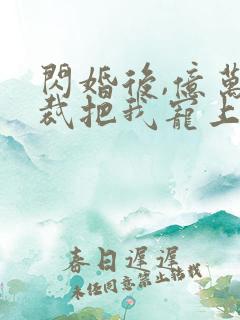 閃婚後,億萬
裁把我寵上
春日遲遲
未任同意禁止轉載